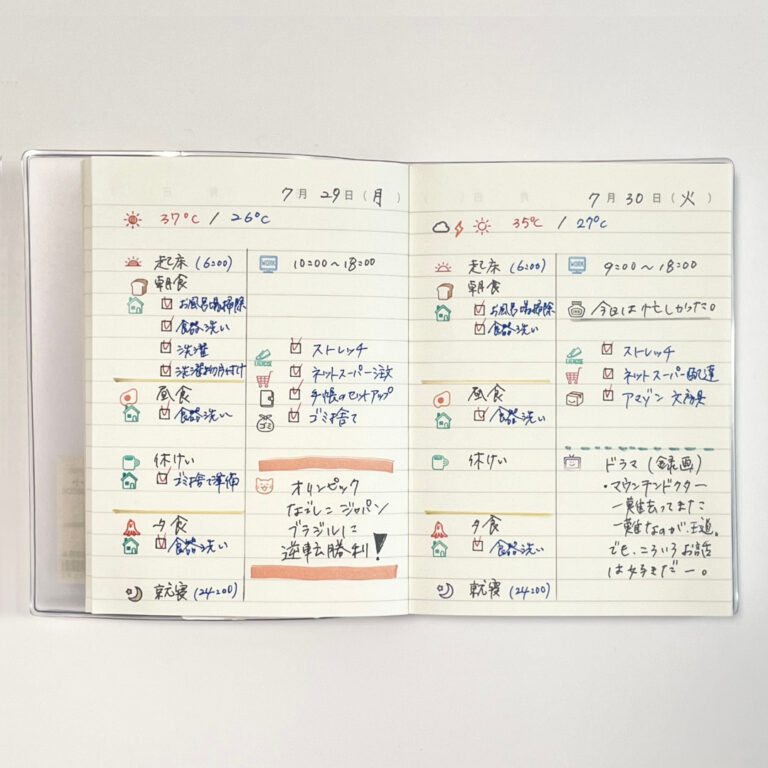 7月29日(月)
37℃ / 26℃
起床 (6:00)
朝食
お風呂場掃除
食器洗い
洗濯
洗濯物片付け
昼食
食器洗い
休けい
ゴミ捨て準備
夕食
食器洗い
就寝 (24:00)
WORK 10:00〜18:00
EXERCISE ストレッチ
ネットスーパー注文
手帳のセットアップ
ゴミ捨て
オリンピック
なでしこ ジャパン
ブラジルに
逆転勝利!
7月30日(火)
35℃ / 27℃
起床 (6:00)
朝食
お風呂場掃除
食器洗い
昼食
食器洗い
休けい
夕食
食器洗い
就寝 (24:00)
WORK 9:00〜18:00
今日は忙しかった。
EXERCISE ストレッチ
ネットスーパー配達
アマゾン 文房具
ドラマ (録画)
・マウンテンドクター
一難去ってまた
一難なのが、王道。
でも、こういうお話
は好きだー。